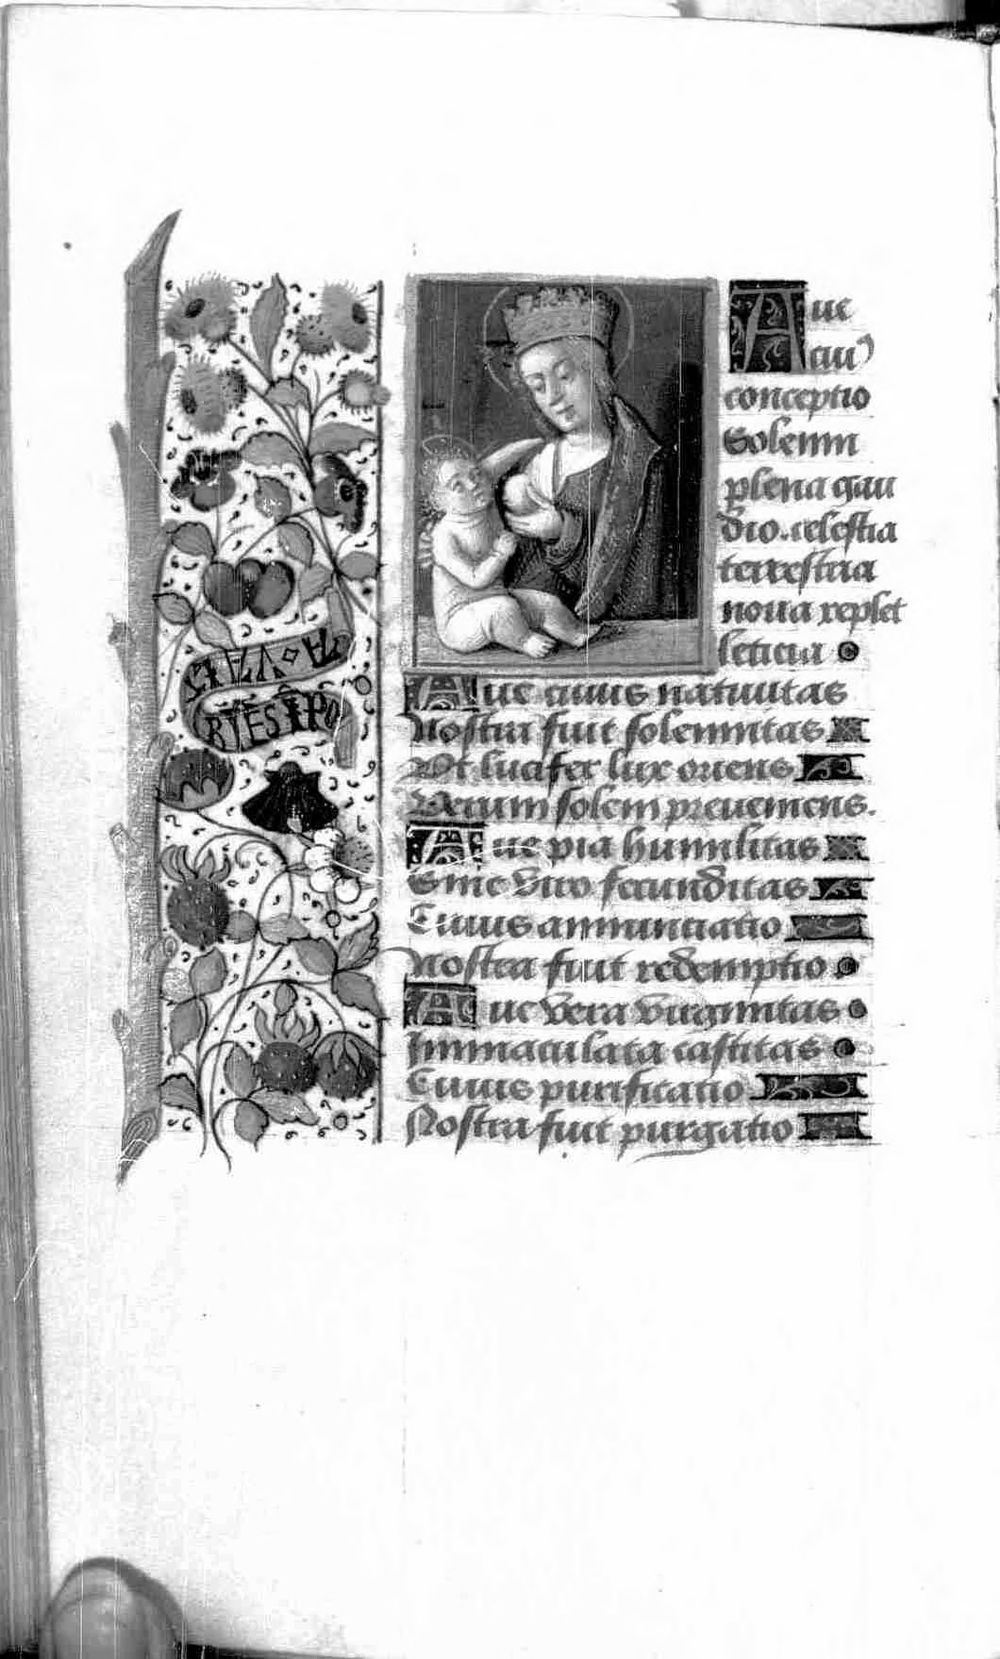 Aue
cuiꝰ
conceptio
Solemni
plena gau
dio. celestia
terrestria
noua replet
leticia
Aue cuius natiuitas
Nostra fuit solemnitas
Vt lucifer lux oriens
Verum solem preueniens.
Aue pia humilitas
Sine viro fecunditas
Cuius annunciatio
Nostra fuit redemptio
Aue vera virginitas
Immaculata castitas
Cuius purificatio
Nostra fuit purgatio